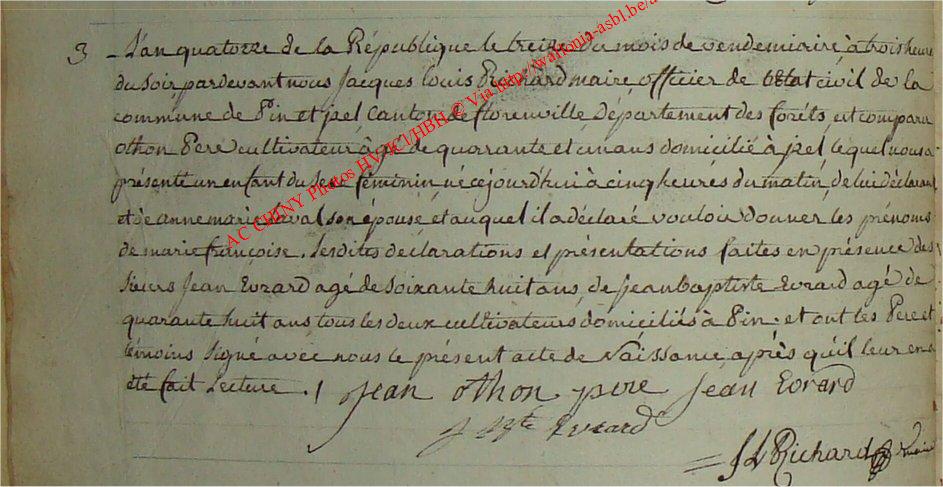 3 L'an quatorze de la République le treize du mois de vendemiaire à trois heure
du soir, pardevant nous Jacques Louis Richard maire, officier de l'état civil de la
commune de Pin et izel Canton de florenville, Département des forêts, est comparu
othon Pere cultivateur âgé de quarante et un ans domicilié à izel lequel nous a
présenté un enfant du sexe féminin né cejourd'hui à cinq heures du matin, de lui déclarant
et de anne marie laval son épouse, et auquel il a déclaré vouloir donner les prénoms
de marie françoise. Lesdites déclarations et présentations faites en présence des
sieurs Jean Evrard agé de soixante huit ans, de jean baptiste Evrard agé de
quarante huit ans tous les deux cultivateurs domiciliés à Pin. et ont les Pere et
témoins signé avec nous le présent acte de Naissance, après qu'il leur en a
été fait Lecture. / jean othon pere jean Evrard
J Bte Evrard
J L Richard maire
AC CHINY Photos HV-IC1/HBH © Via http://wallonia-asbl.be/a